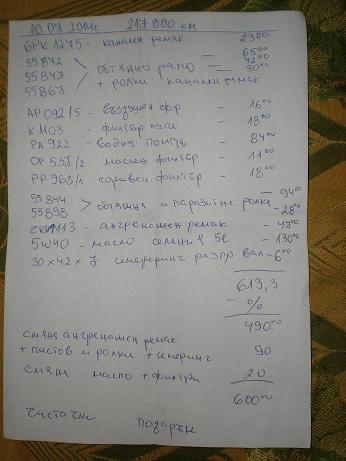 10.07.2014г. 217 000 км
6PK 1275 - канален ремак 23,80
55872 - 65,00
55847 > обтяжно рамо - 42,50
55867 + ролки канален ремак - 30,00
AP 092/5 - въздушен ф-р - 16,00
K 1103 - филтър купе - 18,00
PA 922 - водна помпа - 84,00
OP 557/2 маслен филтър - 11,00
PP 968/1 горивен филтър - 18,00
55844 - 94,00
55898 > обтяжна и паразитна ролка - 28,00
1113 - ангренажен ремак - 49,00
5W40 - масло 5l - 130,00
30x42x7 семеринг разпр. вал - 6,00
613,3
- %
490,00
смяна ангренажен ремак
+ пистов и ролки + семеринг 90
смяна масло + филтри 20
600,00
чистачки подарък